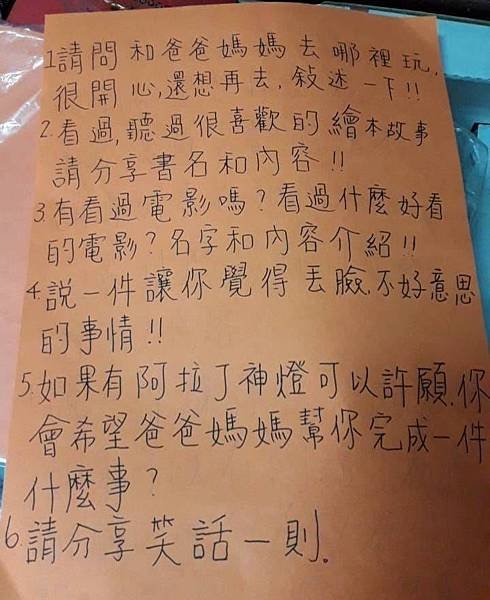 1.請問和爸爸媽媽去哪裡玩,
很開心,還想再去,敍述一下!!
2.看過,聽過很喜歡的繪本故事
請分享書名和內容!!
3.有看過電影嗎?看過什麼好看
的電影?名字和內容介紹!!
4.說一件讓你覺得丟臉,不好意思
的事情!!
5.如果有阿拉丁神燈可以許願,你
會希望爸爸媽媽幫你完成一件
什麼事?
6.請分享笑話一則。